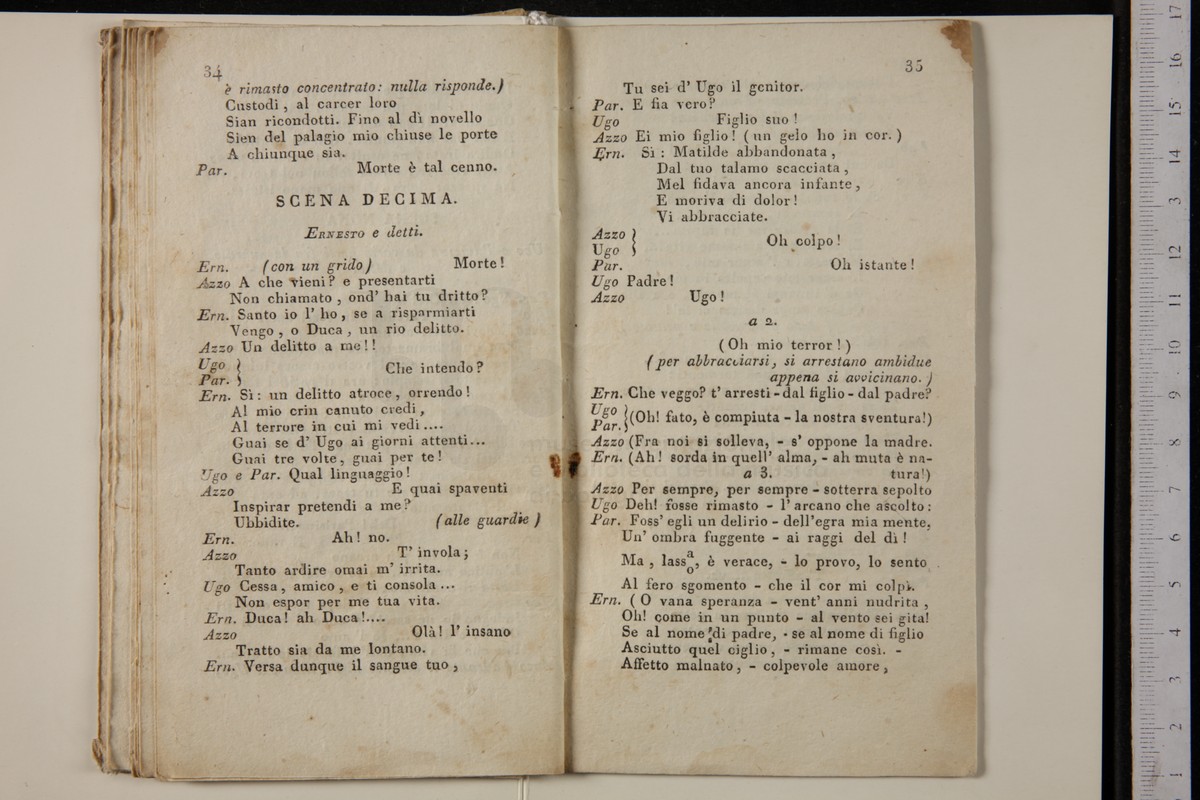 34
è rimasto concentrato: nulla risponde.)
Custodi, al carcer loro
Sian ricondotti. Fino al dì novello
Sien del palagio mio chiuse le porte
A chiunque sia.
Par. Morte è tal cenno.
SCENA DECIMA.
ERNESTO e detti.
Ern. (con un grido) Morte!
Azzo A che vieni? e presentarti
Non chiamato, ond' hai tu dritto?
Ern. Santo io l' ho, se a risparmiarti
Vengo, o Duca, un rio delitto.
Azzo Un delitto a me!!
Ugo }
Par. } Che intendo?
Ern. Sì: un delitto atroce, orrendo!
Al mio crin canuto credi,
Al terrore in cui mi vedi....
Guai se d' Ugo ai giorni attenti...
Guai tre volte, guai per te!
Ugo e Par. Qual linguaggio!
Azzo E quai spaventi
Inspirar pretendi a me?
Ubbidite. (alle guardie)
Ern. Ah! no.
Azzo T' invola;
Tanto ardire omai m' irrita.
Ugo Cessa, amico, e ti consola...
Non espor per me tua vita.
Ern. Duca! ah Duca!....
Azzo Olà! l' insano
Tratto sia da me lontano.
Ern. Versa dunque il sangue tuo,
35
Tu sei d' Ugo il genitor.
Par. E fia vero?
Ugo Figlio suo!
Azzo Ei mio figlio! (un gelo ho in cor.)
Ern. Sì: Matilde abbandonata,
Dal tuo talamo scacciata,
Mel fidava ancora infante,
E moriva di dolor!
Vi abbracciate.
Azzo }
Ugo } Oh colpo!
Par. Oh istante!
Ugo Padre!
Azzo Ugo!
a 2.
(Oh mio terror!)
(per abbracciarsi, si arrestano ambidue
appena si avvicinano.)
Ern. Che veggo? t' arresti - dal figlio - dal padre?
Ugo }
Par. } (Oh! fato, è compiuta - la nostra sventura!)
Azzo (Fra noi si solleva, - s' oppone la madre.
Ern. (Ah! sorda in quell' alma, - ah muta è na-
a 3. tura!)
Azzo Per sempre, per sempre - sotterra sepolto
Ugo Deh! fosse rimasto - l' arcano che ascolto:
Par. Foss' egli un delirio - dell'egra mia mente,
Un' ombra fuggente - ai raggi del dì!
Ma, lass a o, è verace, - lo provo, lo sento
Al fero sgomento - che il cor mi colpì.
Ern. (O vana speranza - vent' anni nudrita,
Oh! come in un punto - al vento sei gita!
Se al nome di padre, - se al nome di figlio
Asciutto quel ciglio, - rimane così. -
Affetto malnato, - colpevole amore,